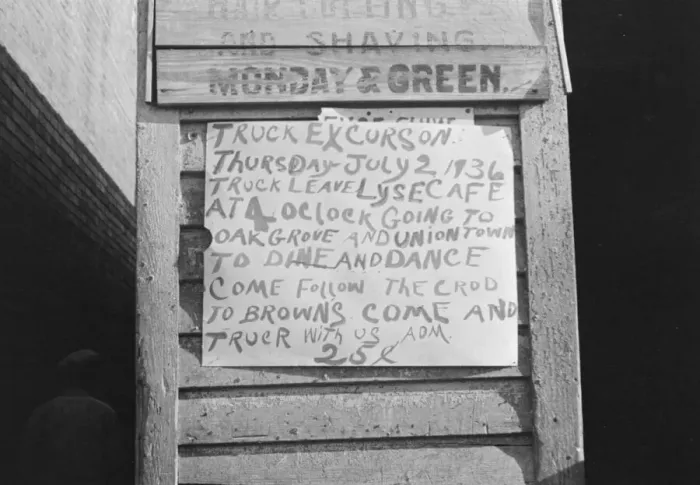 HAIR CUTTING
AND SHAVING.
MONDAY & GREEN.
TRUCK EXCURSON.
THURSDAY-JULY 2, 1936
TRUCK LEAVE LYSE CAFE
AT 4 OCLOCK GOING TO
OAK GROVE AND UNIONTOWN
TO DINE AND DANCE
COME FOLLOW THE CROD
TO BROWNS COME AND
TRUCR WITH US ADM.
25¢